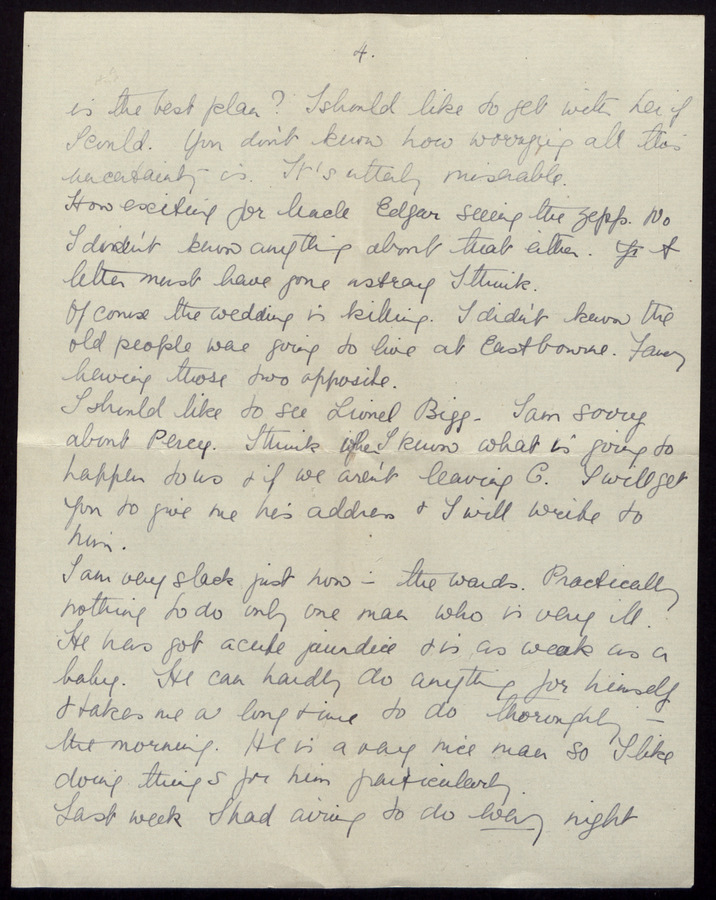 4.
is the best plan? I should like to get with her if
I could. You don't know how worrying all this
uncertainty is. It's utterly miserable.
How exciting for Uncle Edgar seeing the zepp. No
I didn't know anything about that either. A
letter must have gone astray I think.
Of course the wedding is killing. I didn't know the
old people were going to live at Eastbourne. Fancy
having those two opposite.
I should like to see Lionel Bigg. I am sorry
about Percy. I think when I know what is going to
happen to us & if we aren't leaving C. I will get
you to give me his address & I will write to
him.
I am very slack just now in the wards. Practically
nothing to do only one man who is very ill.
He has got acute jaundice & is as weak as a
baby. He can hardly do anything for himself
& takes me a long time to do thoroughly in
the morning. He is a very nice man so I like
doing things for him particularly.
Last week I had airing to do every night